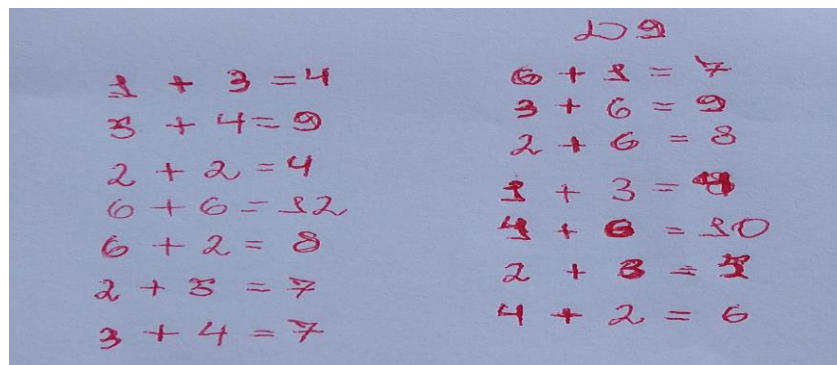 1 + 3 = 4
5 + 4 = 9
2 + 2 = 4
6 + 6 = 12
6 + 2 = 8
2 + 5 = 7
3 + 4 = 7
6 + 1 = 7
3 + 6 = 9
2 + 6 = 8
1 + 3 = 4
4 + 6 = 10
2 + 3 = 5
4 + 2 = 6